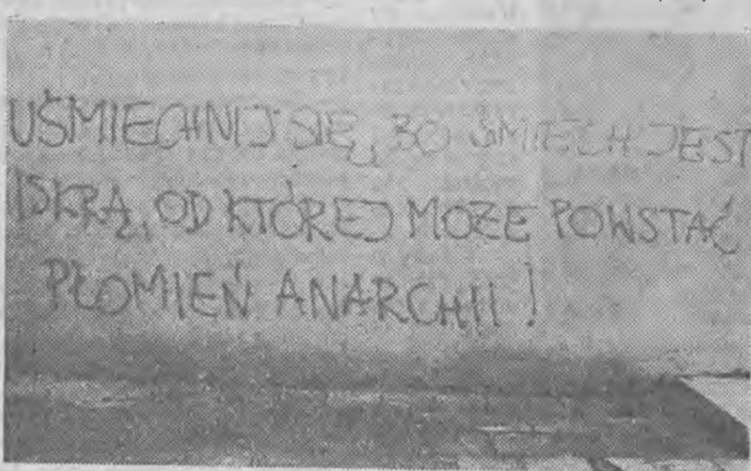 UŚMIECHNIJ SIĘ, BO ŚMIECH JEST
ISKRĄ, OD KTÓREJ MOŻE POWSTAĆ
PŁOMIEŃ ANARCHII!